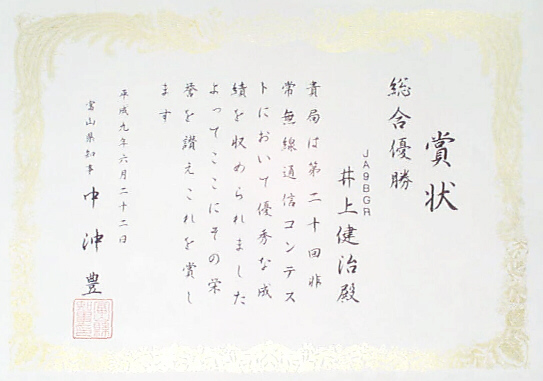 賞状
総合優勝
JA9BGR
井上健治殿
貴局は第二十回非
常無線通信コンテス
トにおいて優秀な成
績を収められました
よってここにその栄
誉を讃えこれを賞し
ます
平成九年六月二十二日
富山県知事 中沖豊